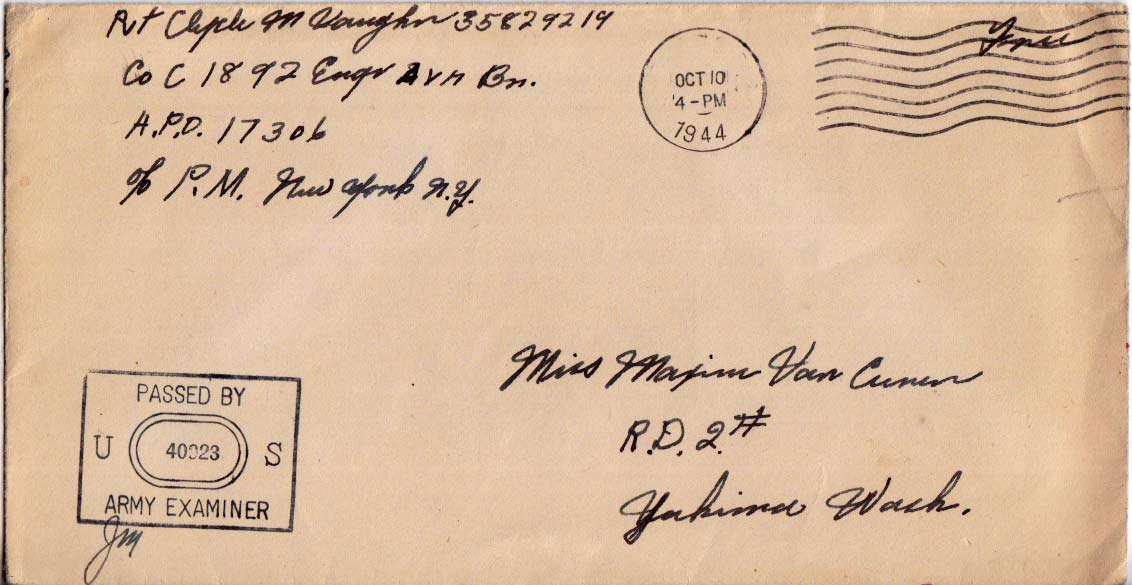 Pvt Clyde M Vaughn 35829219
Co C 1892 Engr Avn Bn.
A.P.O. 17306
c/o P.M. New York N.Y.
OCT 10
4-PM
1944
Free
Miss Maxine Van Cunen
R.D. 2 #
Yakima Wash.
PASSED BY
U 40023 S
ARMY EXAMINER
JM